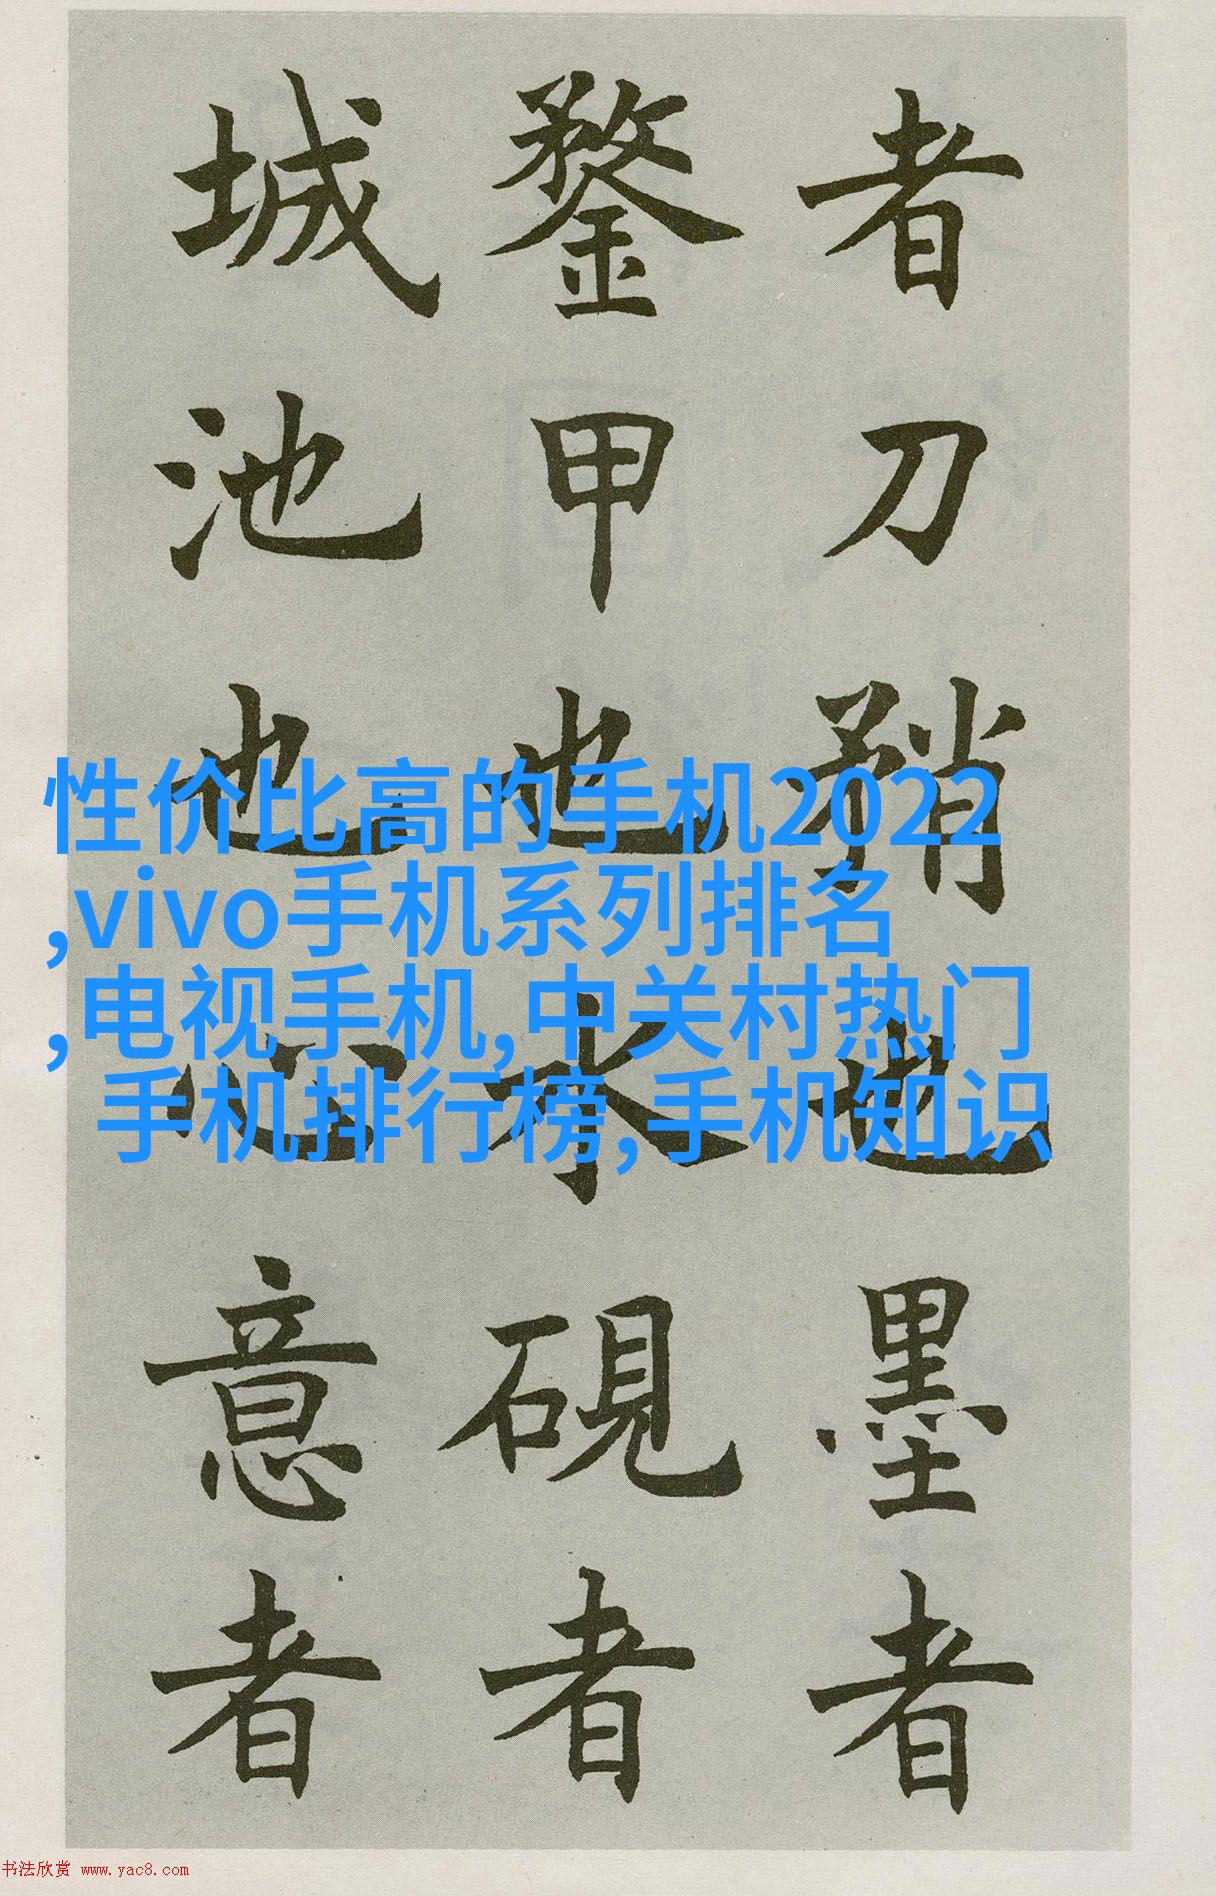 者刀矟也墨者
鍪甲也水硯者
城池也心意者
性价比高的手机2022
,vivo手机系列排名
,电视手机,中关村热门
手机排行榜,手机知识
书法欣赏 www.yac8.com